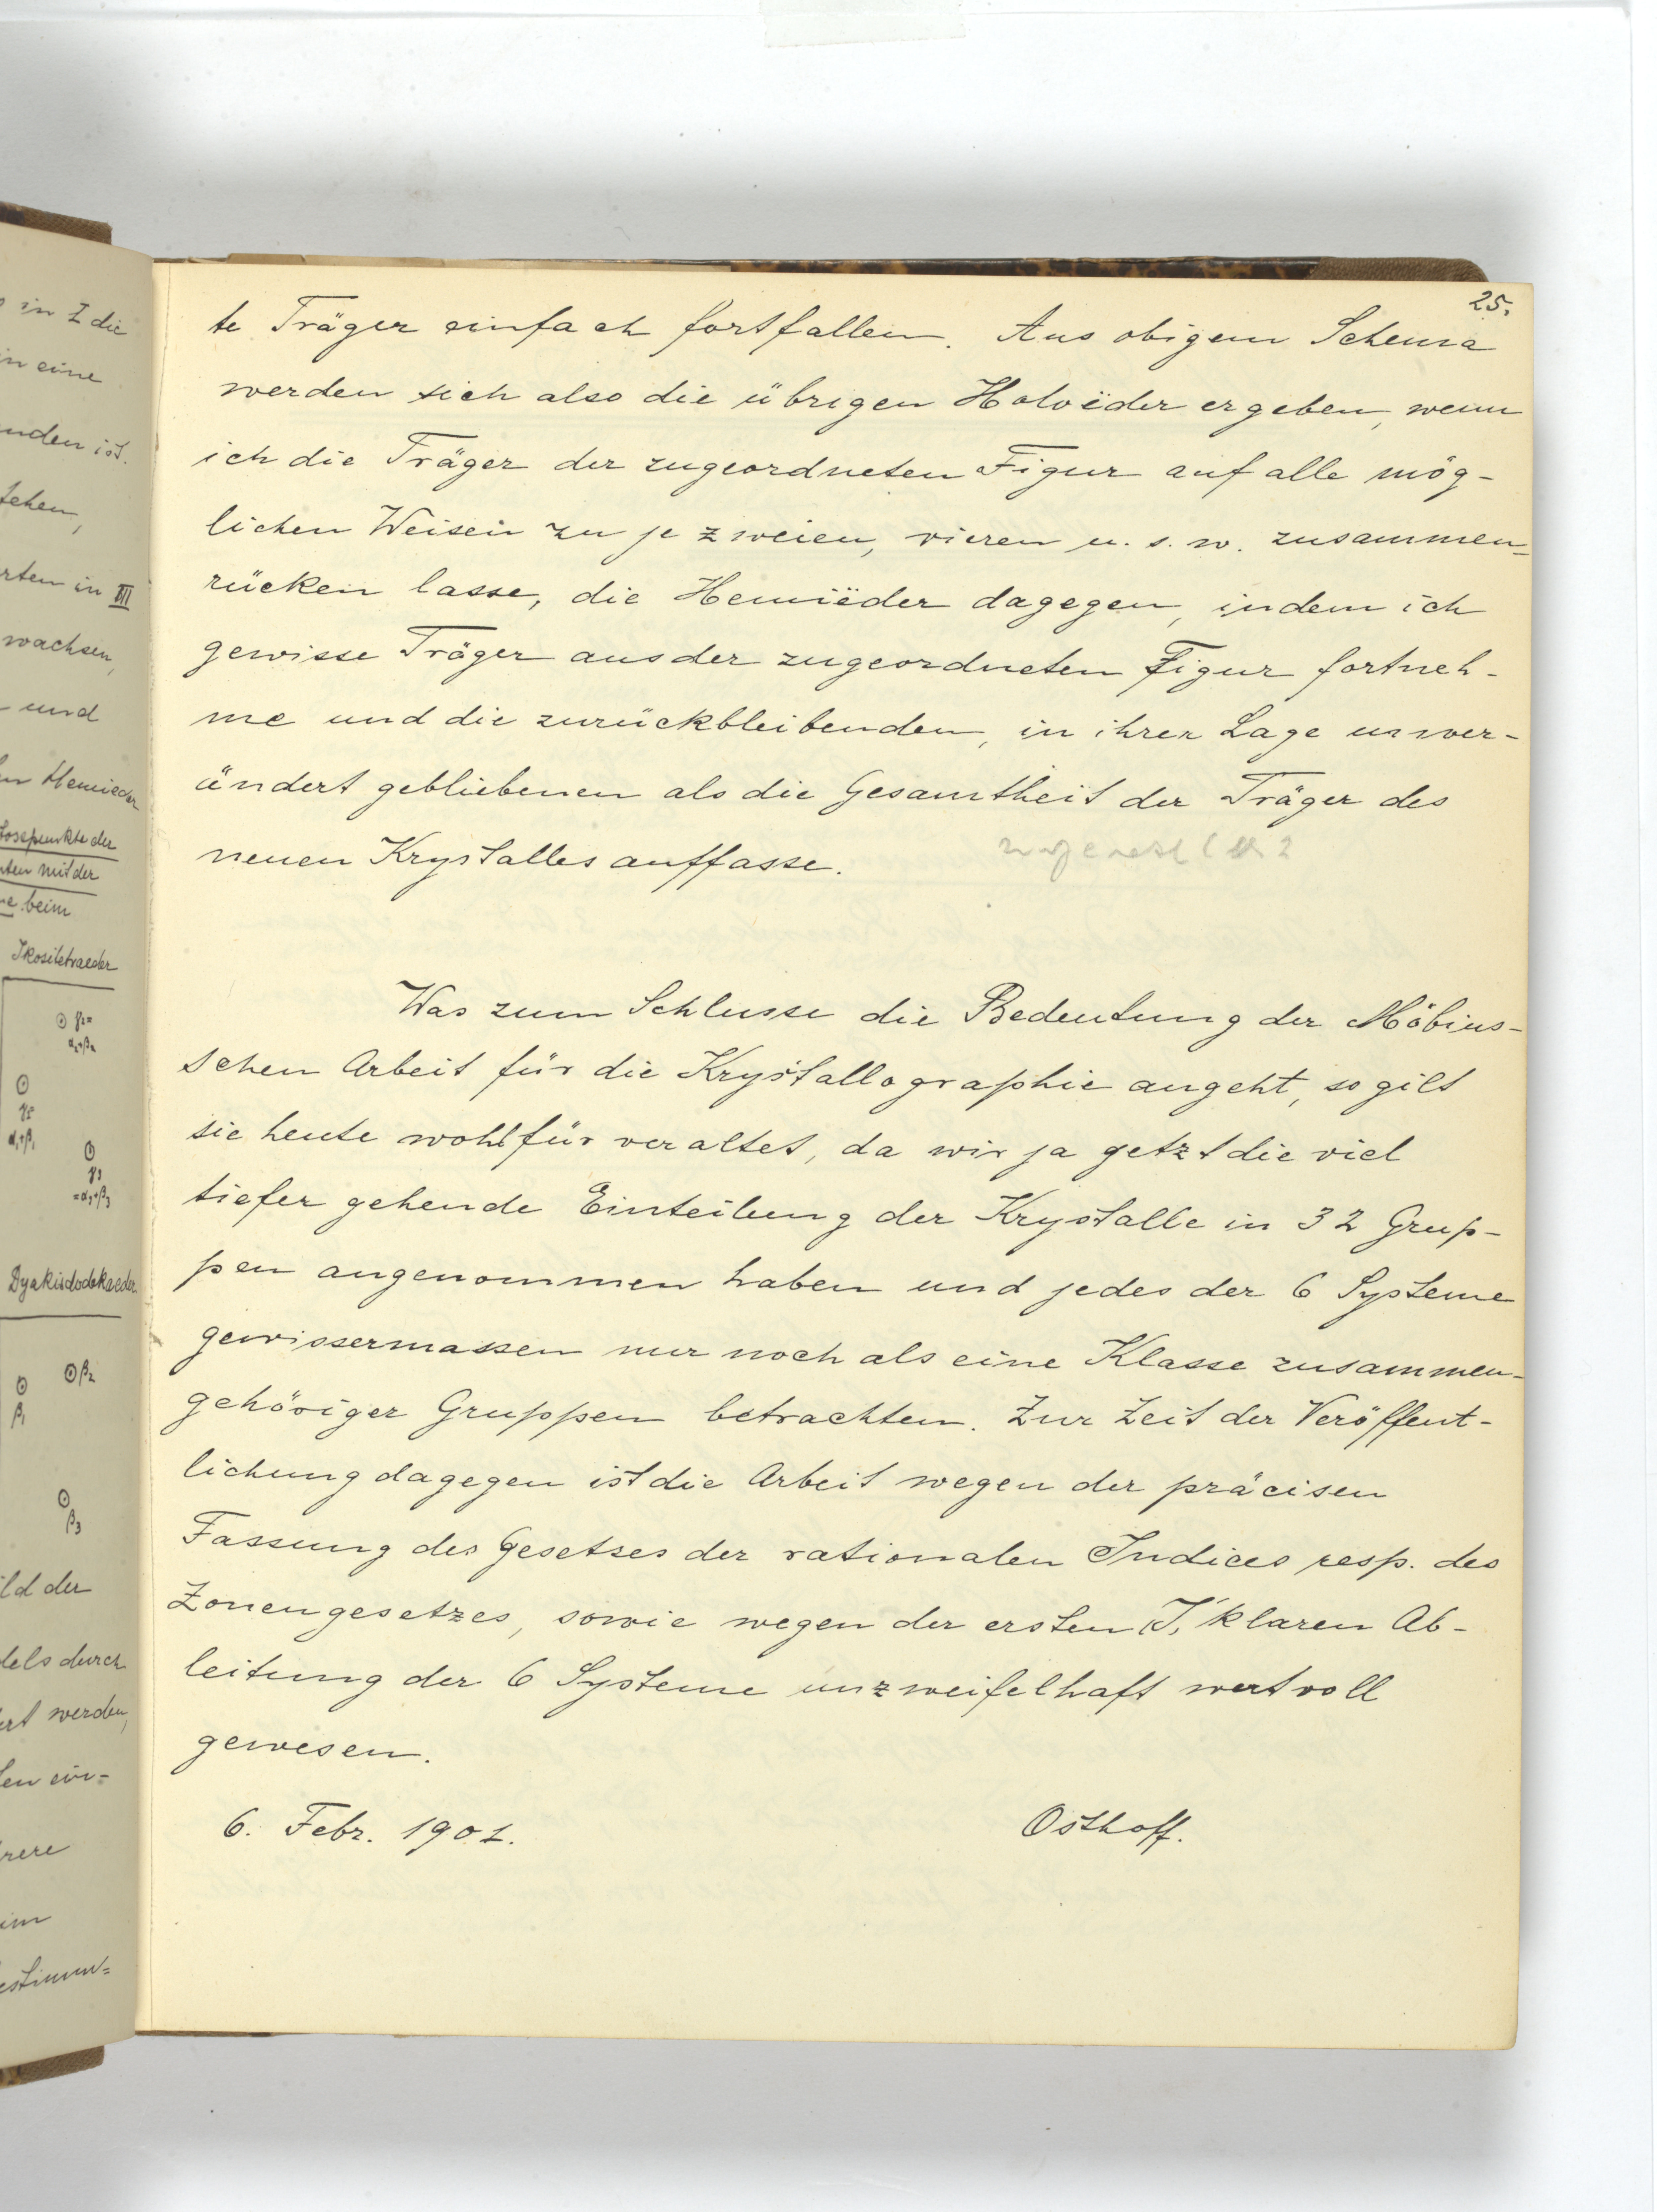 in Z die
in eine
nden ist.
tehen,
rten in III
wachsen,
und
Hemieder
mit der
beim
Ikositetraeder
γ2=
α2+β2
α1+β1
γ3
=α3+β3
Dyakisdodekaeder
β2
β1
β3
ild der
dels durch
ert werden,
im
25.
te Träger einfach fortfallen. Aus obigem Schema
werden sich also die übrigen Holoëder ergeben, wenn
ich die Träger der zugeordneten Figur auf alle mög-
lichen Weisen zu je zweien, vieren u. s. w. zusammen-
rücken lasse, die Hemiëder dagegen, indem ich
gewisse Träger aus der zugeordneten Figur fortneh-
me und die zurückbleibenden, in ihrer Lage unver-
ändert gebliebenen als die Gesamtheit der Träger des
neuen Krystalles auffasse.
Was zum Schlusse die Bedeutung der Möbius-
schen Arbeit für die Krystallographie angeht, so gilt
sie heute wohl für veraltet, da wir ja jetzt die viel
tiefer gehende Einteilung der Krystalle in 32 Grup-
pen angenommen haben und jedes der 6 Systeme
gewissermassen nur noch als eine Klasse zusammen-
gehöriger Gruppen betrachten. Zur Zeit der Veröffent-
lichung dagegen ist die Arbeit wegen der präcisen
Fassung des Gesetzes der rationalen Indices resp. des
Zonengesetzes, sowie wegen der ersten klaren Ab-
leitung der 6 Systeme unzweifelhaft wertvoll
gewesen.
6. Febr. 1901.
Osthoff.